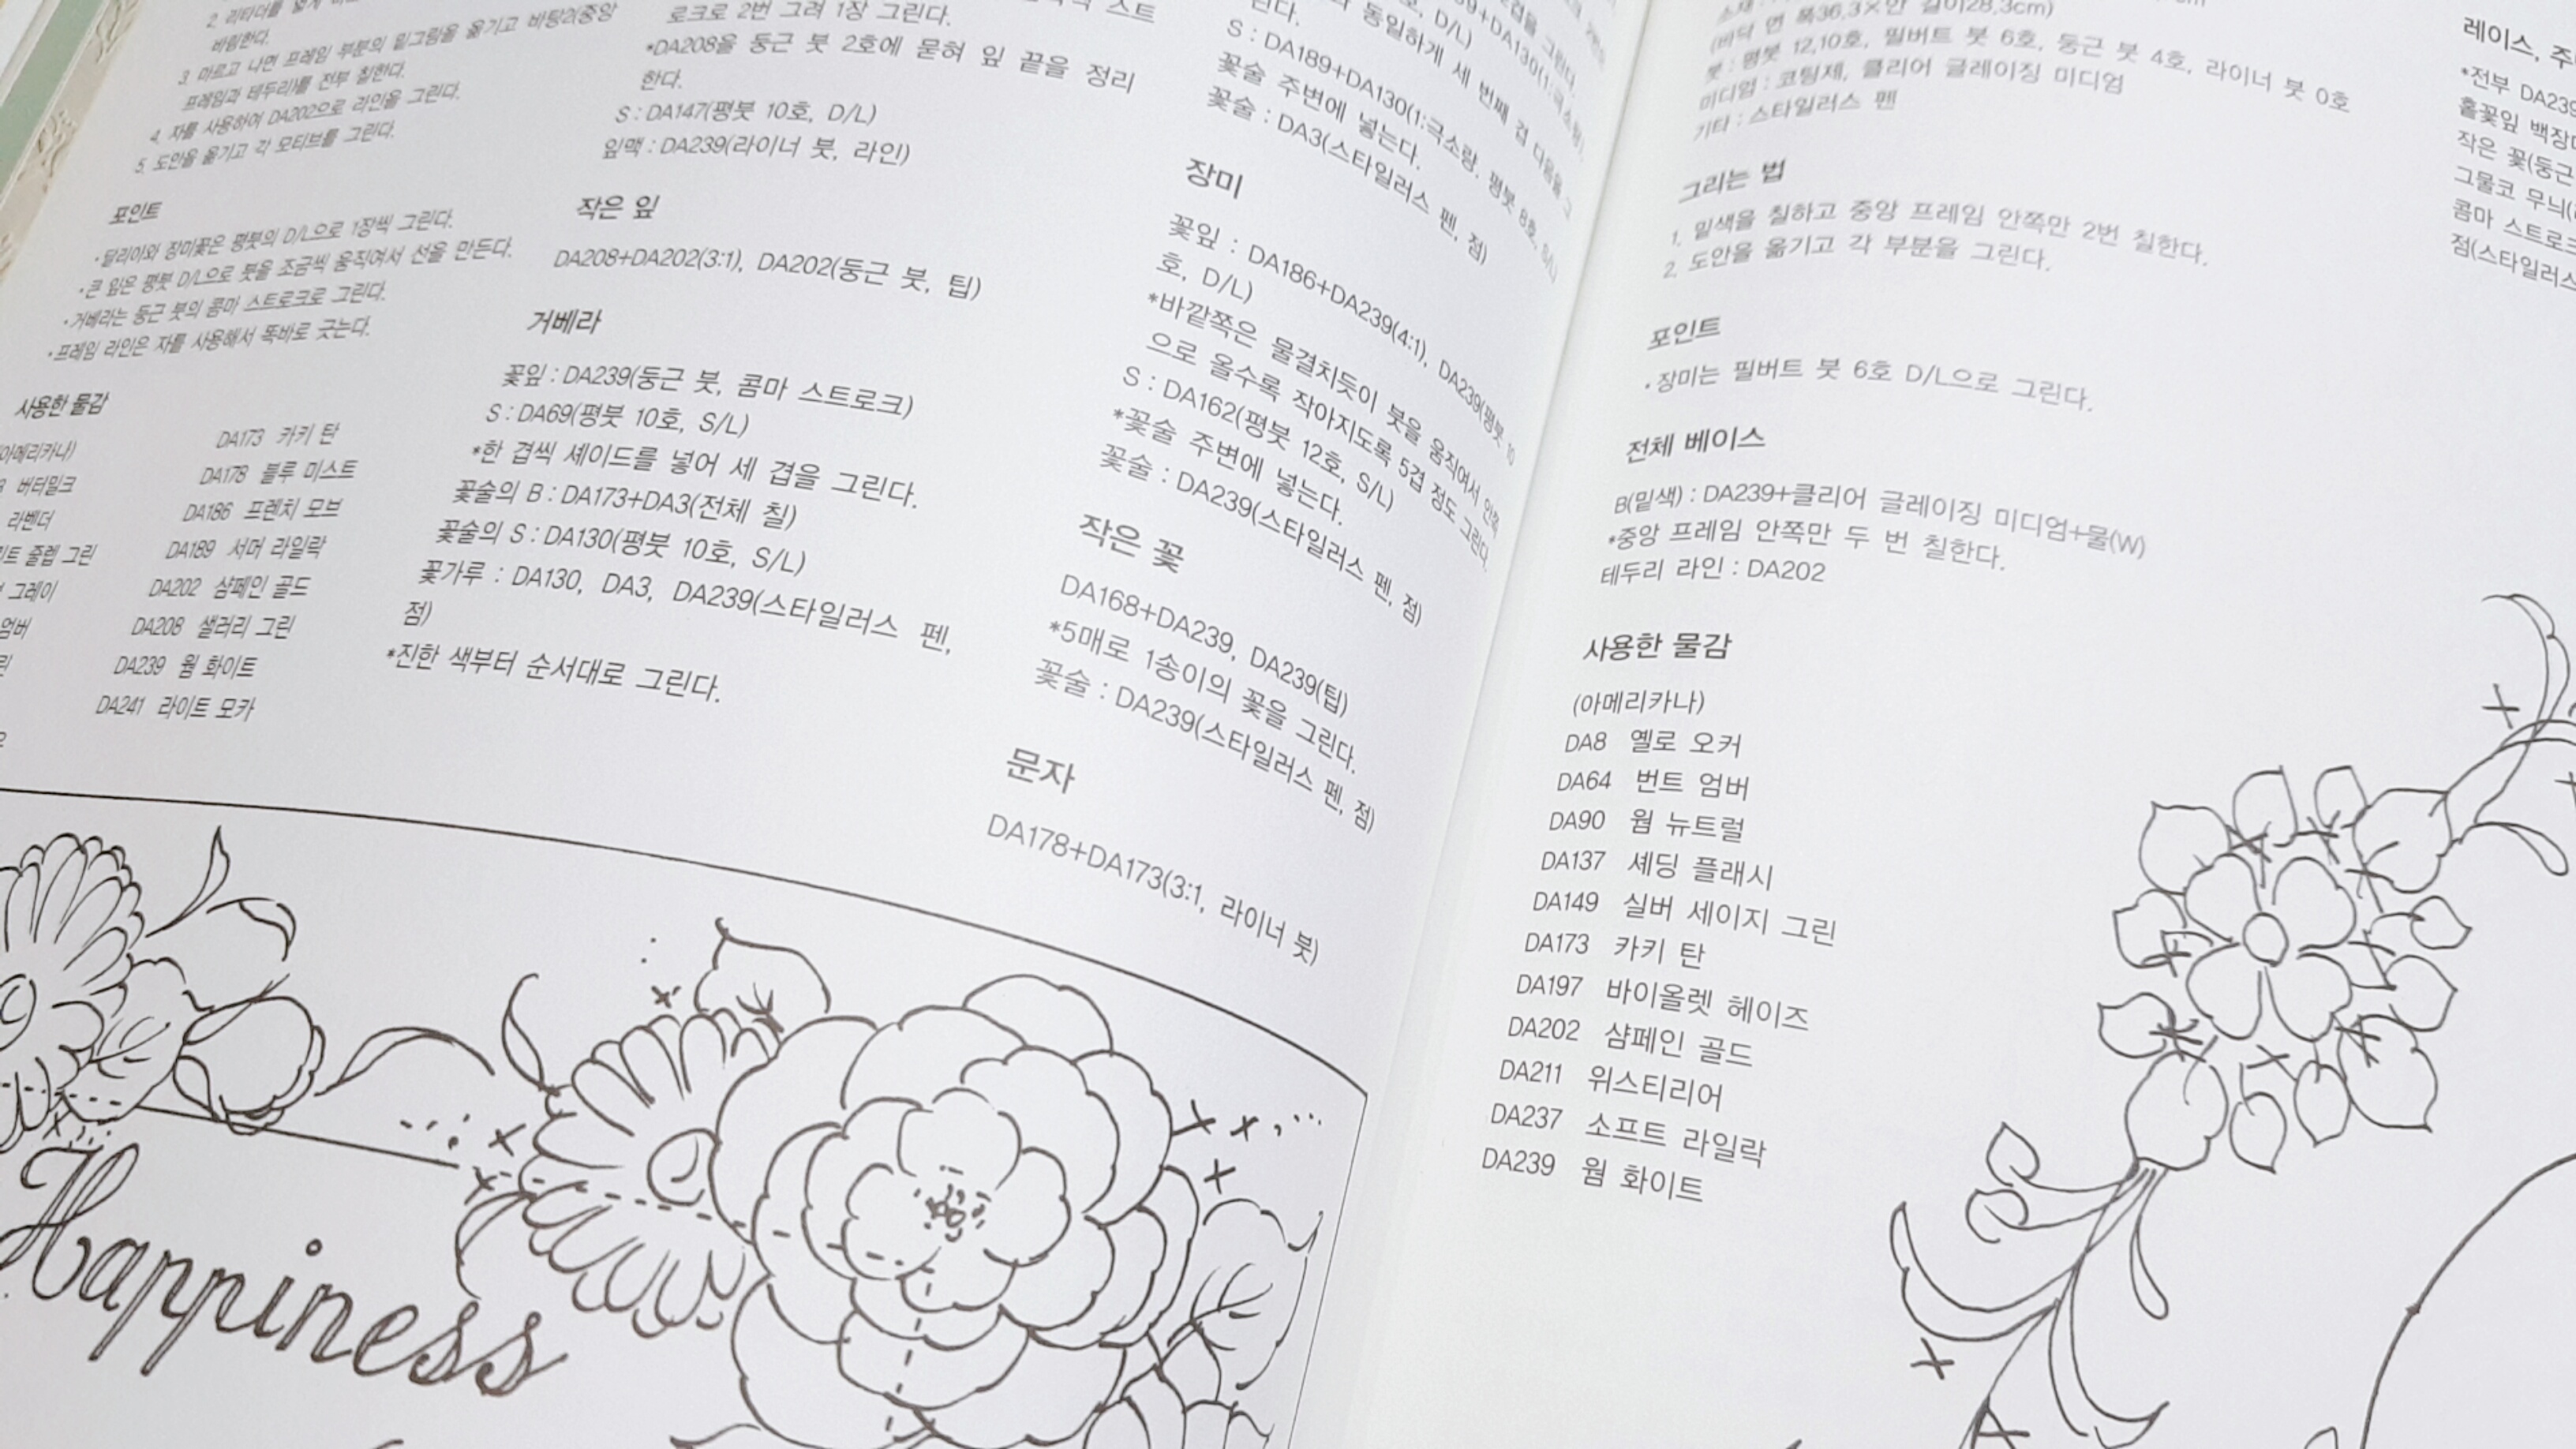 바림한다.
3. 마르고 나면 프레임 부분의 밑그림을 옮기고 바탕2(중앙
프레임과 테두리)를 전부 칠한다.
4. 자를 사용하여 DA202으로 라인을 그린다.
5. 도안을 옮기고 각 모티브를 그린다.
포인트
•달리아와 장미꽃은 평붓의 D/L으로 1장씩 그린다.
•큰 잎은 평붓 D/L으로 붓을 조금씩 움직여서 선을 만든다.
•거베라는 둥근 붓의 콤마 스트로크로 그린다.
•프레임 라인은 자를 사용해서 똑바로 긋는다.
사용한 물감
아메리카나)
버터밀크
라벤더
줄렙 그린
그레이
엄버
DA173 카키 탄
DA178 블루 미스트
DA186 프렌치 모브
DA189 서머 라일락
DA202 샴페인 골드
DA208 샐러리 그린
DA239 웜 화이트
DA241 라이트 모카
스트
로크로 2번 그려 1장 그린다.
*DA208을 둥근 붓 2호에 묻혀 잎 끝을 정리
한다.
S : DA147(평붓 10호, D/L)
잎맥 : DA239(라이너 붓, 라인)
작은 잎
DA208+DA202(3:1), DA202(둥근 붓, 팁)
거베라
꽃잎 : DA239(둥근 붓, 콤마 스트로크)
S : DA69(평붓 10호, S/L)
*한 겹씩 셰이드를 넣어 세 겹을 그린다.
꽃술의 B : DA173+DA3(전체 칠)
꽃술의 S : DA130(평붓 10호, S/L)
꽃가루 : DA130, DA3, DA239(스타일러스 펜,
점)
*진한 색부터 순서대로 그린다.
동일하게 세 번째 겹 다음을 그
린다.
S : DA189+DA130(1:극소량, 평붓 8호, S/L)
꽃술 주변에 넣는다.
꽃술 : DA3(스타일러스 펜, 점)
장미
꽃잎 : DA186+DA239(4:1), DA239(평붓 10
호, D/L)
*바깥쪽은 물결치듯이 붓을 움직여서 안쪽
으로 올수록 작아지도록 5겹 정도 그린다.
S : DA162(평붓 12호, S/L)
*꽃술 주변에 넣는다.
꽃술 : DA239(스타일러스 펜, 점)
작은 꽃
DA168+DA239, DA239(팁)
*5매로 1송이의 꽃을 그린다.
꽃술 : DA239(스타일러스 펜, 점)
문자
DA178+DA173(3:1, 라이너 붓)
Happiness
(바닥 면 폭36.3×안 길이28.3cm)
붓 : 평붓 12,10호, 필버트 붓 6호, 둥근 붓 4호, 라이너 붓 0호
미디엄 : 코팅제, 클리어 글레이징 미디엄
기타 : 스타일러스 펜
그리는 법
1. 밑색을 칠하고 중앙 프레임 안쪽만 2번 칠한다.
2. 도안을 옮기고 각 부분을 그린다.
포인트
•장미는 필버트 붓 6호 D/L으로 그린다.
전체 베이스
B(밑색) : DA239+클리어 글레이징 미디엄+물(W)
*중앙 프레임 안쪽만 두 번 칠한다.
테두리 라인 : DA202
사용한 물감
(아메리카나)
DA8 옐로 오커
DA64 번트 엄버
DA90 웜 뉴트럴
DA137 셰딩 플래시
DA149 실버 세이지 그린
DA173 카키 탄
DA197 바이올렛 헤이즈
DA202 샴페인 골드
DA211 위스티리어
DA237 소프트 라일락
DA239 웜 화이트
레이스,
*전부
홑꽃잎
작은 꽃(둥근
그물코 무늬(
콤마
점(스타일러스